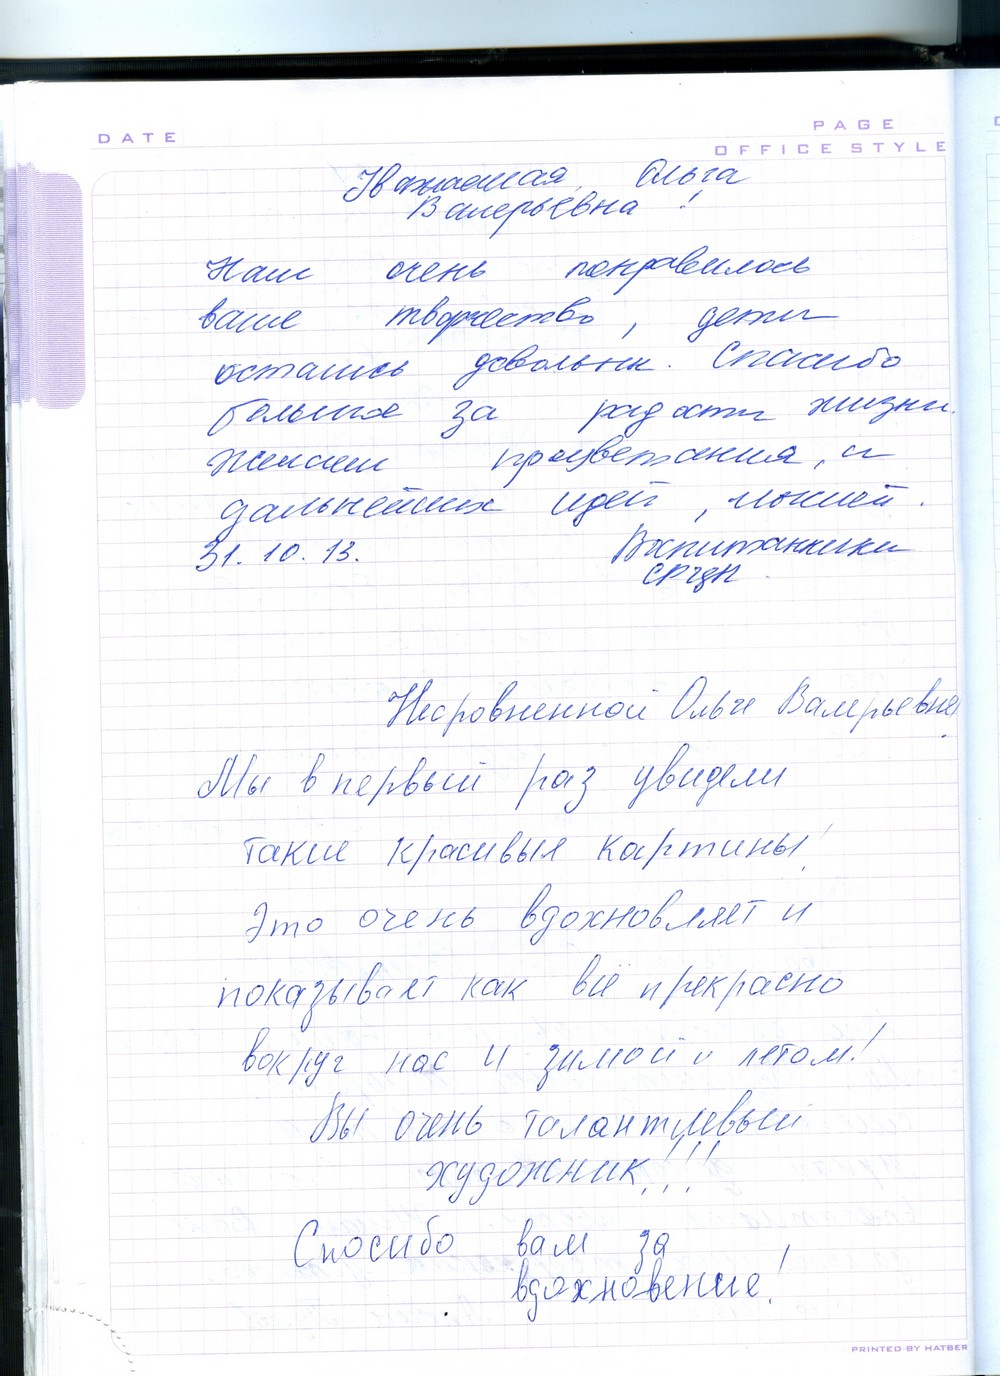 DATE
PAGE
OFFICE STYLE
Уважаемая Ольга
Валерьевна !
Нам очень понравилось
ваше творчество, дети
остались довольны. Спасибо
большое за радости жизни.
Желаем процветания, и
дальнейших идей,
31.10.13. Воспитанники
СРЦН
Несровненной Ольге Валерьевне
Мы в первый раз увидели
такие красивые картины!
Это очень вдохновляет и
показывает как всё прекрасно
вокруг нас и зимой и летом!
Вы очень талантливый
художник!!!
Спосибо вам за
вдохновение!
PRINTED BY HATBER